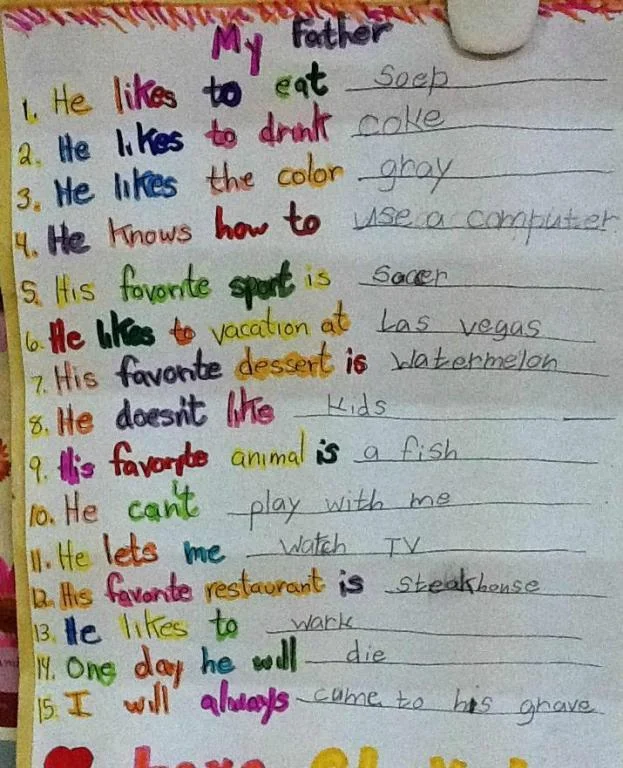 My Father
1. He likes to eat Soep
2. He likes to drink coke
3. He likes the color ghay
4. He knows how to use a computer
5. His favorite sport is Soccer
6. He likes to vacation at Las vegas
7. His favorite dessert is Watermelon
8. He doesn't like kids
9. His favorite animal is a fish
10. He can't play with me
11. He lets me Watch TV
12. His favorite restaurant is Steakhouse
13. He likes to wark
14. One day he will die
15. I will always came to his ghave